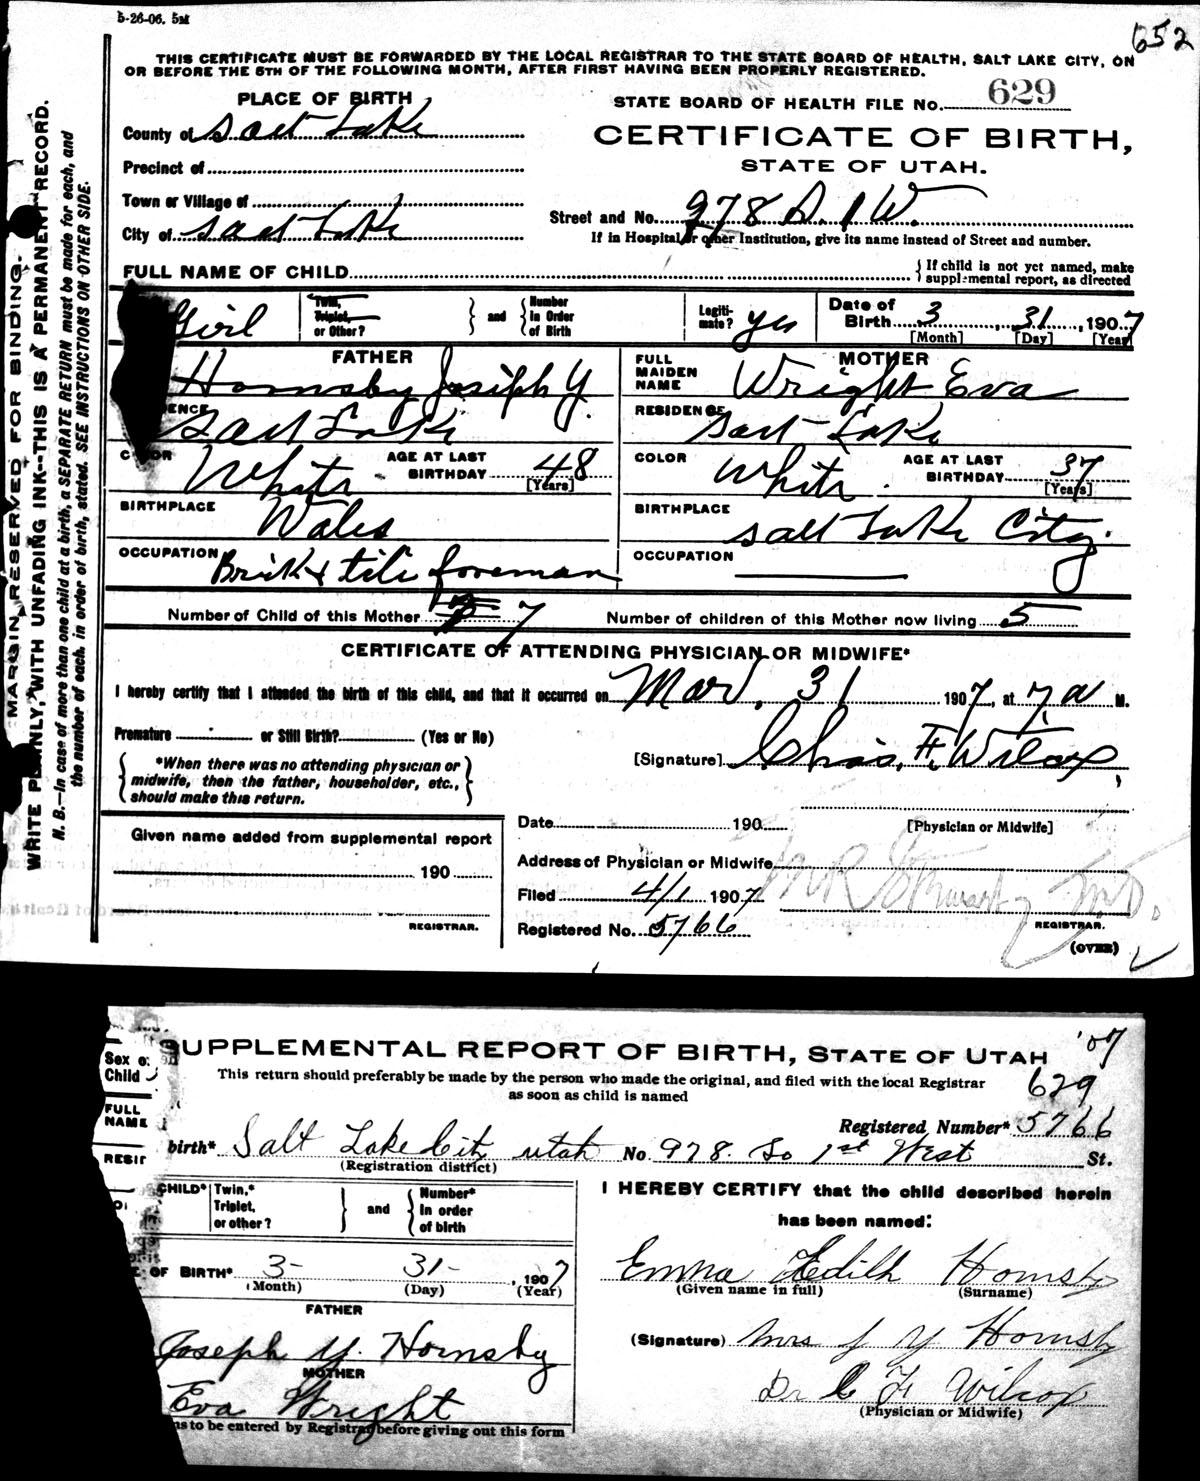 5-26-06. 5M
652
THIS CERTIFICATE MUST BE FORWARDED BY THE LOCAL REGISTRAR TO THE STATE BOARD OF HEALTH, SALT LAKE CITY, ON
OR BEFORE THE 5TH OF THE FOLLOWING MONTH, AFTER FIRST HAVING BEEN PROPERLY REGISTERED.
MARGIN RESERVED FOR BINDING.
WRITE PLAINLY, WITH UNFADING INK--THIS IS A PERMANENT RECORD.
N. B.—In case of more than one child at a birth, a SEPARATE RETURN must be made for each, and
the number of each, in order of birth, stated. SEE INSTRUCTIONS ON OTHER SIDE.
PLACE OF BIRTH
County of Salt Lake
Precinct of
Town or Village of
City of Salt Lake
STATE BOARD OF HEALTH FILE No. 629
CERTIFICATE OF BIRTH,
STATE OF UTAH.
Street and No. 978 S. 1 W.
If in Hospital or other Institution, give its name instead of Street and number.
FULL NAME OF CHILD
If child is not yet named, make
supplemental report, as directed
Girl
Twin,
Triplet,
or Other?
and
Number
in Order
of Birth
Legiti-
mate? yes
Date of
Birth 3, 31, 1907
[Month] [Day] [Year]
FATHER
Hornsby Joseph Y.
ENCE
Salt Lake
COLOR White AGE AT LAST
BIRTHDAY 48
[Years]
BIRTHPLACE Wales
OCCUPATION Brick & tile foreman
MOTHER
FULL
MAIDEN
NAME Wright Eva
RESIDENCE Salt Lake
COLOR White. AGE AT LAST
BIRTHDAY 37
[Years]
BIRTHPLACE Salt Lake City.
OCCUPATION
Number of Child of this Mother 7 Number of children of this Mother now living 5
CERTIFICATE OF ATTENDING PHYSICIAN OR MIDWIFE*
I hereby certify that I attended the birth of this child, and that it occurred on Mar. 31 1907, at 7 a M.
Premature or Still Birth? (Yes or No)
*When there was no attending physician or
midwife, then the father, householder, etc.,
should make this return.
[Signature] Chas. F. Wilcox,
[Physician or Midwife]
Given name added from supplemental report
190
REGISTRAR.
Date 190
Address of Physician or Midwife
Filed 4/1 1907 M.D.
REGISTRAR.
Registered No. 5766
(OVER)
SUPPLEMENTAL REPORT OF BIRTH, STATE OF UTAH '07
This return should preferably be made by the person who made the original, and filed with the local Registrar
as soon as child is named
629
Sex o
Child
FULL
NAME
RESIF
Registered Number* 5766
birth* Salt Lake City Utah No. 978. So 1st West St.
(Registration district)
CHILD* Twin,*
Triplet,
or other?
and
Number*
in order
of birth
OF BIRTH* 3- 31- , 1907
(Month) (Day) (Year)
FATHER
Joseph Y. Hornsby
MOTHER
Eva Wright
ns to be entered by Registrar before giving out this form
I HEREBY CERTIFY that the child described herein
has been named:
Emma Edith Hornsby
(Given name in full) (Surname)
(Signature) Mrs J Y Hornsby
Dr C F Wilcox
(Physician or Midwife)